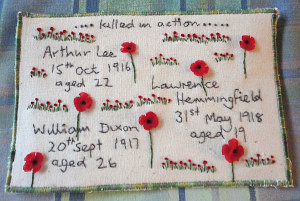 ..... killed in action .....
Arthur Lee
15th Oct 1916
aged 22
Lawrence
Hemmingfield
31st May 1918
aged 19
William Dixon
20th Sept 1917
aged 26